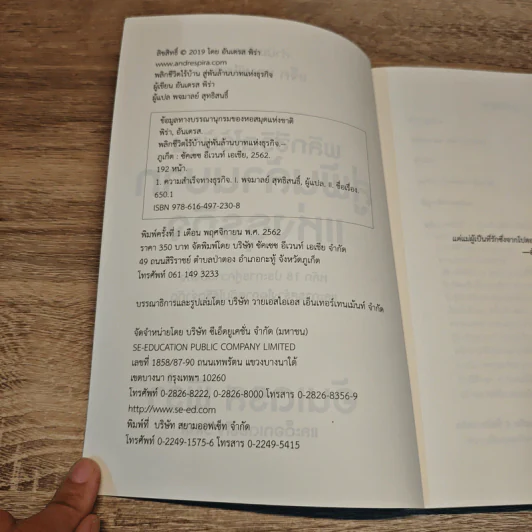 ลิขสิทธิ์ © 2019 โดย อันเดรส พีร่า
www.andrespira.com
พลิกชีวิตไร้บ้าน สู่พันล้านบาทแห่งธุรกิจ
ผู้เขียน อันเดรส พีร่า
ผู้แปล พจมาลย์ สุทธิสนธิ์
ข้อมูลทางบรรณานุกรมของหอสมุดแห่งชาติ
พีร่า, อันเดรส.
พลิกชีวิตไร้บ้านสู่พันล้านบาทแห่งธุรกิจ.--
ภูเก็ต : ซัคเซซ อีเวนท์ เอเชีย, 2562.
192 หน้า.
1. ความสำเร็จทางธุรกิจ. I. พจมาลย์ สุทธิสนธิ์, ผู้แปล. II. ชื่อเรื่อง.
650.1
ISBN 978-616-497-230-8
พิมพ์ครั้งที่ 1 เดือน พฤศจิกายน พ.ศ. 2562
ราคา 350 บาท จัดพิมพ์โดย บริษัท ซัคเซซ อีเวนท์ เอเชีย จำกัด
49 ถนนสิริราชย์ ตำบลป่าตอง อำเภอกะทู้ จังหวัดภูเก็ต
โทรศัพท์ 061 149 3233
บรรณาธิการและรูปเล่มโดย บริษัท วายเอสไอเอส เอ็นเทอร์เทนเม้นท์ จำกัด
จัดจำหน่ายโดย บริษัท ซีเอ็ดยูเคชั่น จำกัด (มหาชน)
SE-EDUCATION PUBLIC COMPANY LIMITED
เลขที่ 1858/87-90 ถนนเทพรัตน แขวงบางนาใต้
เขตบางนา กรุงเทพฯ 10260
โทรศัพท์ 0-2826-8222, 0-2826-8000 โทรสาร 0-2826-8356-9
http://www.se-ed.com
พิมพ์ที่ บริษัท สยามออฟเซ็ท จำกัด
โทรศัพท์ 0-2249-1575-6 โทรสาร 0-2249-5415
แด่แม่ผู้เป็นที่รักซึ่งจากไปตลอด